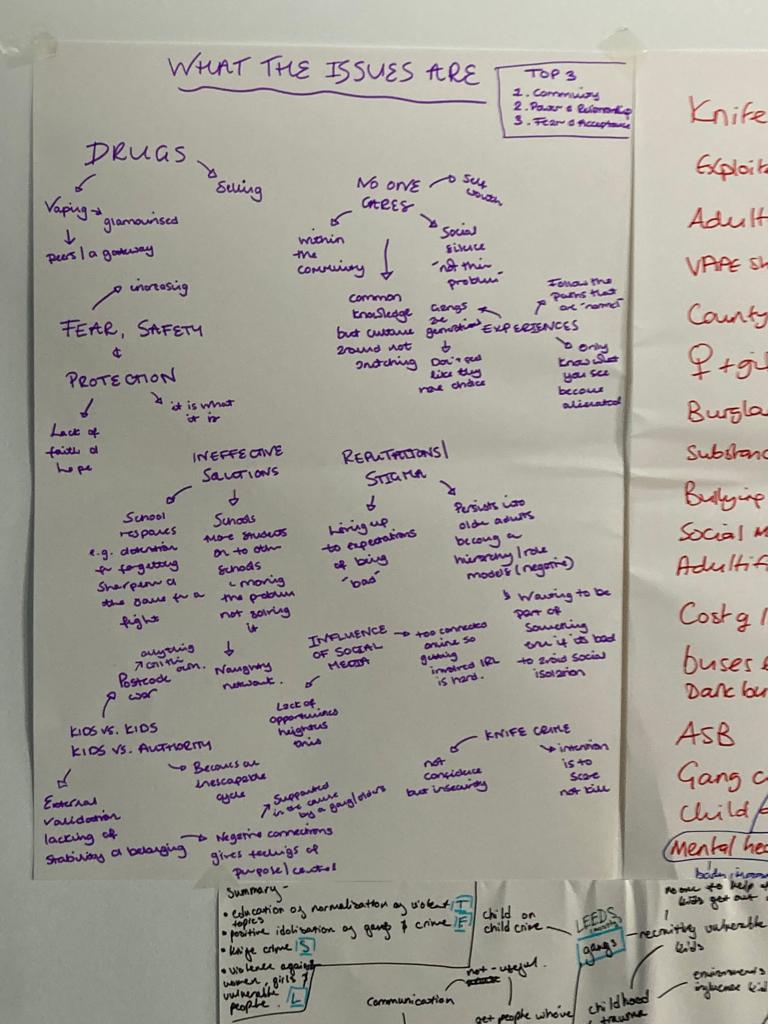 WHAT THE ISSUES ARE
TOP 3
1. Community
2. Power & Relationship
3. Fear & Acceptance
DRUGS
Selling
Vaping
glamourised
peers / a gateway
NO ONE
CARES
Self
worth
within
the
community
Social
silence
"not their
problem"
common
knowledge
but culture
around not
snitching
increasing
FEAR, SAFETY
&
PROTECTION
it is what
it is
Lack of
faith &
hope
EXPERIENCES
Follow the
paths that
are "normal"
Gangs
are
generational
Don't feel
like they
have choice
only
know what
you see
become
alienated
INEFFECTIVE
SOLUTIONS
School
responses
e.g. detention
for forgetting
sharpener &
the same for a
fight
Schools
move students
on to other
schools
moving
the problem
not solving
it
Naughty
network.
REPUTATIONS/
STIGMA
Living up
to expectations
of being
"bad"
Persists into
older adults
becoming a
hierarchy / role
models (negative)
Wanting to be
part of
something
even if it's bad
to avoid social
isolation
INFLUENCE
OF SOCIAL
MEDIA
too connected
online so
getting
involved IRL
is hard.
Lack of
opportunities
heightens
this
anything
Postcode
war
KIDS VS. KIDS
KIDS VS. AUTHORITY
Becomes an
inescapable
cycle
External
validation
lacking of
stability & belonging
Negative connections
gives feelings of
purpose / control
Supported
in the cause
by a gang/olders
KNIFE CRIME
not
confidence
but insecurity
intention
is to
scare
not kill
Knife
Exploit
Adult
VAPE S
County
♀ + gi
Burgla
Substanc
Bullying
Social M
Adultifi
Cost of l
buses
Dark bu
ASB
Gang c
Child
Mental hea
Summary -
• education of normalisation of violent T
topics
• positive idolisation of gangs & crime E
• knife crime S
• violence against
women, girls &
vulnerable
people. L
child on
child crime
LEEDS
gangs
no one to help
kids get out
recruiting vulnerable
kids
environments
influence kid
childhood
trauma
not - useful.
communication
get people who've